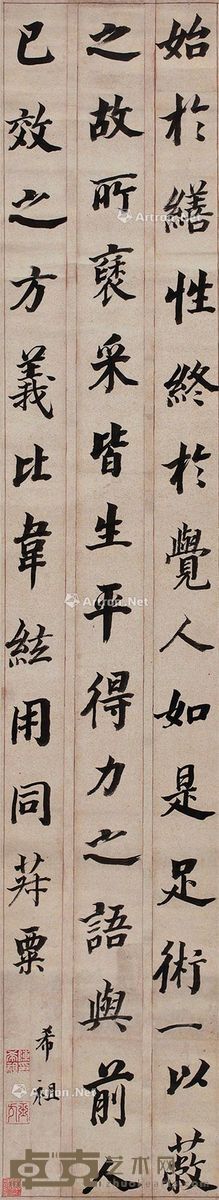 始於繕性終於覺人如是足術一以蔽
之故所褒采皆生平得力之語與前人
已效之方義比韋絃用同菽粟
希祖
Artron.Net
Artron.Net
Artron.Net
Artron.Net
艺术网